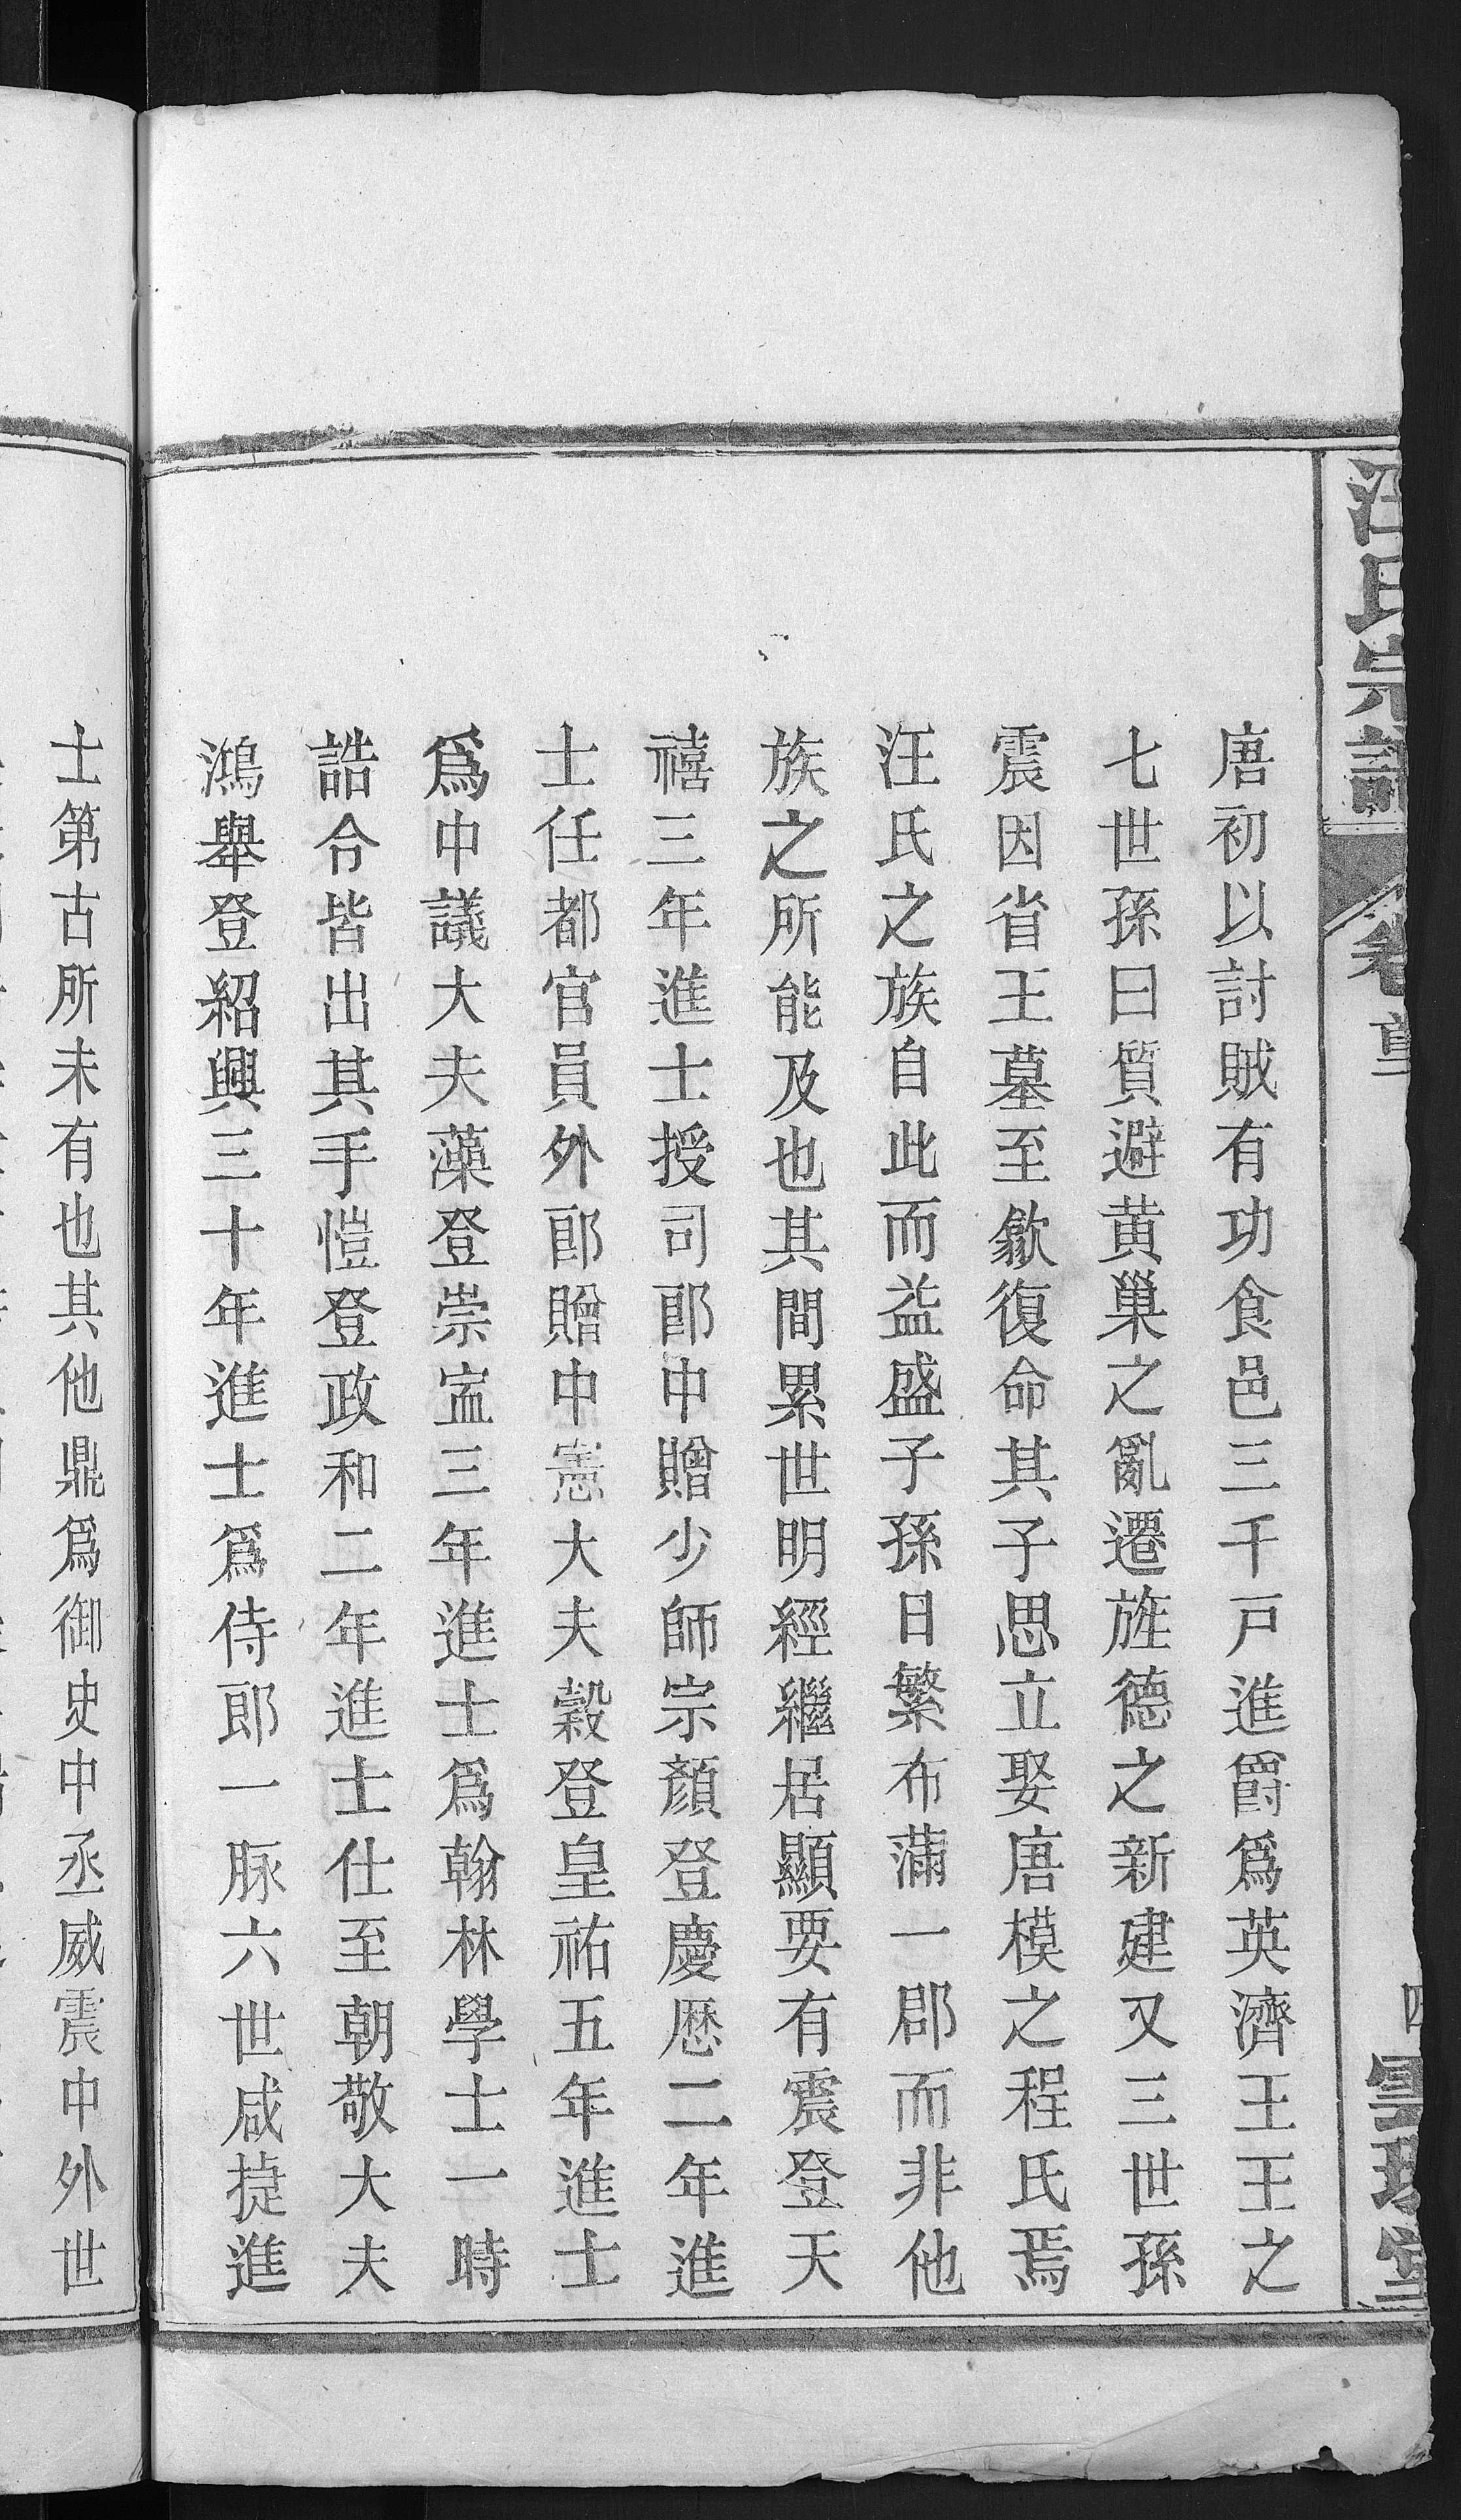 汪氏宗譜
卷首
四
雲環堂
唐初以討賊有功食邑三千戸進爵爲英濟王王之
七世孫曰質避黄巢之亂遷旌德之新建又三世孫
震因省王墓至歙復命其子思立娶唐模之程氏焉
汪氏之族自此而益盛子孫日繁布蒲一郡而非他
族之所能及也其間累世明經繼居顯要有震登天
禧三年進士授司郎中贈少師宗顏登慶厯二年進
士任都官員外郎贈中憲大夫穀登皇祐五年進士
爲中議大夫藻登崇寍三年進士爲翰林學士一時
誥令皆出其手愷登政和二年進士仕至朝敬大夫
鴻舉登紹興三十年進士爲侍郎一脉六世咸㨗進
士第古所未有也其他鼎爲御史中丞威震中外世